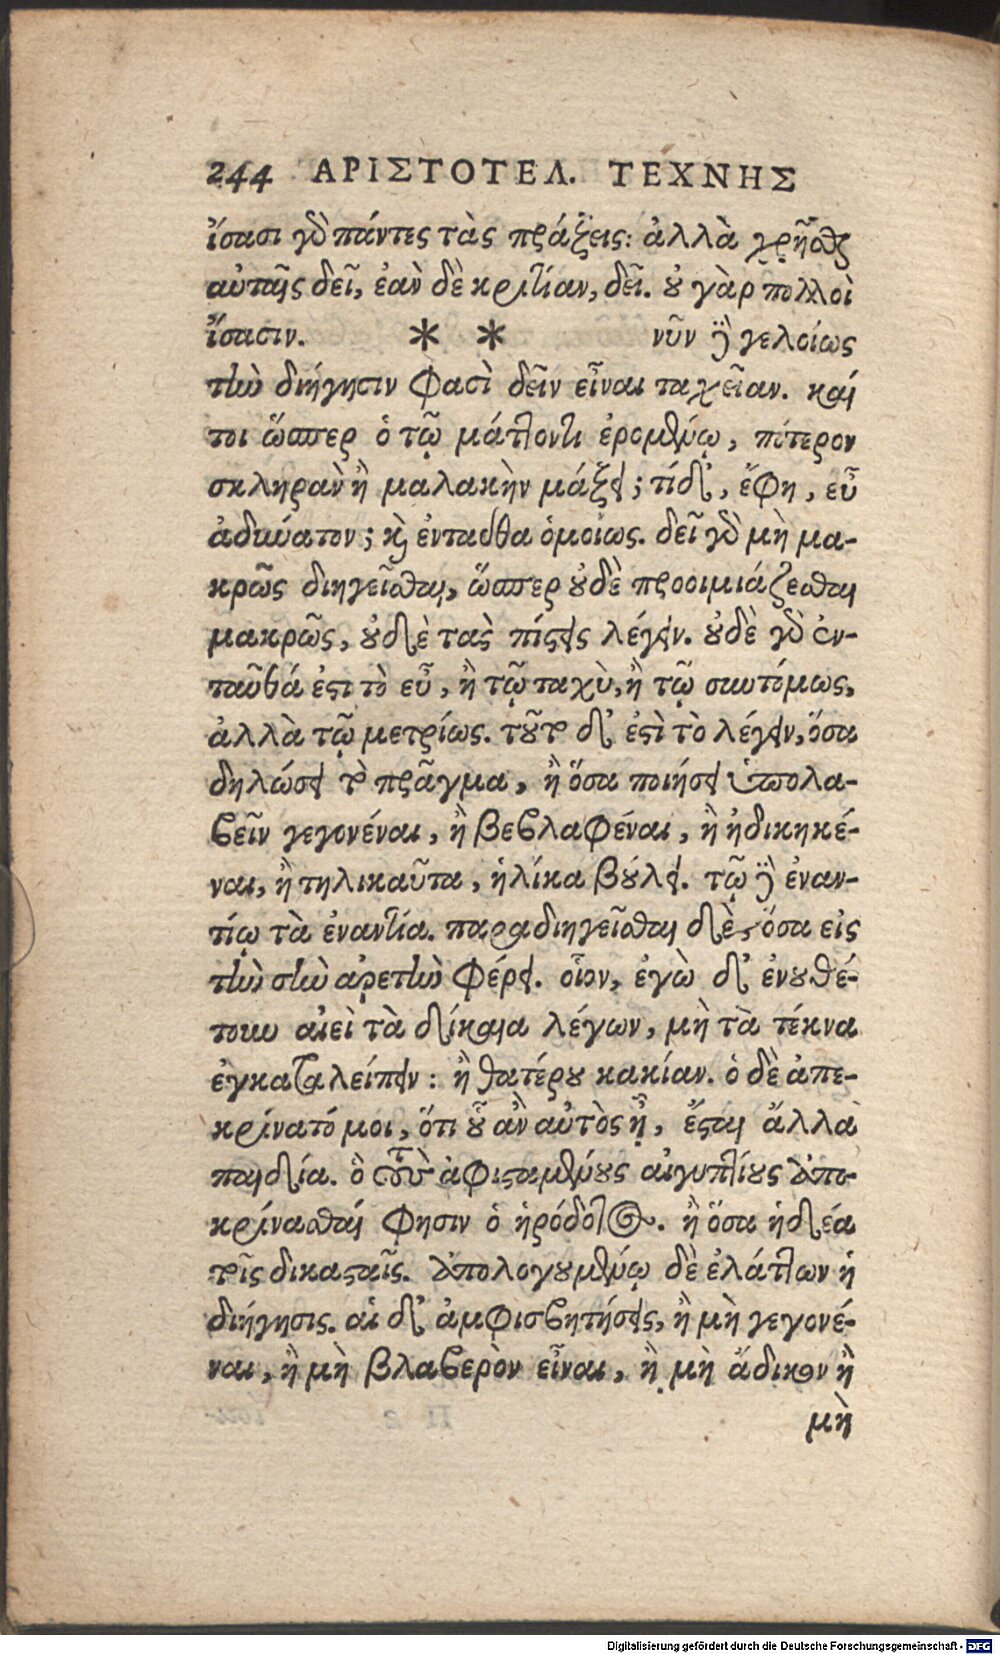 244 ΑΡΙΣΤΟΤΕΛ. ΤΕΧΝΗΣ
ἴσασι γὸ πάντες τὰς πράξεις: ἀλλὰ χρῆσθαι
αὐταῖς δεῖ, ἐὰν δὲ κριτίαν, δεῖ. οὐ γὰρ πολλοὶ
ἴσασιν. * * νῦν δὲ γελοίως
τὴν διήγησιν φασὶ δεῖν εἶναι ταχεῖαν. καί
τοι ὥσπερ ὁ τῷ μάττοντι ἐρομένῳ, πότερον
σκληρὰν ἢ μαλακὴν μάξει; τίδ', ἔφη, εὖ
ἀδύνατον; καὶ ἐνταῦθα ὁμοίως. δεῖ γὸ μὴ μα-
κρῶς διηγεῖσθαι, ὥσπερ οὐδὲ προοιμιάζεσθαι
μακρῶς, οὐδὲ τὰς πίστεις λέγειν. οὐδὲ γὸ ἐν-
ταῦθά ἐστι τὸ εὖ, ἢ τῷ ταχὺ, ἢ τῷ συντόμως,
ἀλλὰ τῷ μετρίως. τοῦτο δ' ἐστὶ τὸ λέγειν, ὅσα
δηλώσει τὸ πρᾶγμα, ἢ ὅσα ποιήσει ὑπολα-
βεῖν γεγονέναι, ἢ βεβλαφέναι, ἢ ἠδικηκέ-
ναι, ἢ τηλικαῦτα, ἡλίκα βούλει. τῷ δὲ ἐναν-
τίῳ τὰ ἐναντία. παραδιηγεῖσθαι δὲ, ὅσα εἰς
τὴν σὴν ἀρετὴν φέρει. οἷον, ἐγὼ δ' ἐνουθέ-
τουν αἰεὶ τὰ δίκαια λέγων, μὴ τὰ τέκνα
ἐγκαταλείπειν: ἢ θατέρου κακίαν. ὁ δὲ ἀπε-
κρίνατό μοι, ὅτι οὗ ἂν αὐτὸς ᾖ, ἔσται ἄλλα
παιδία. ὃ τοὺς ἀφισταμένους αἰγυπτίους ἀπο-
κρίνασθαί φησιν ὁ ἡρόδοτος. ἢ ὅσα ἡδέα
τοῖς δικασταῖς. ἀπολογουμένῳ δὲ ἐλάττων ἡ
διήγησις. αἱ δ' ἀμφισβητήσεις, ἢ μὴ γεγονέ-
ναι, ἢ μὴ βλαβερὸν εἶναι, ἢ μὴ ἄδικον ἢ
μὴ
Digitalisierung gefördert durch die Deutsche Forschungsgemeinschaft - DFG